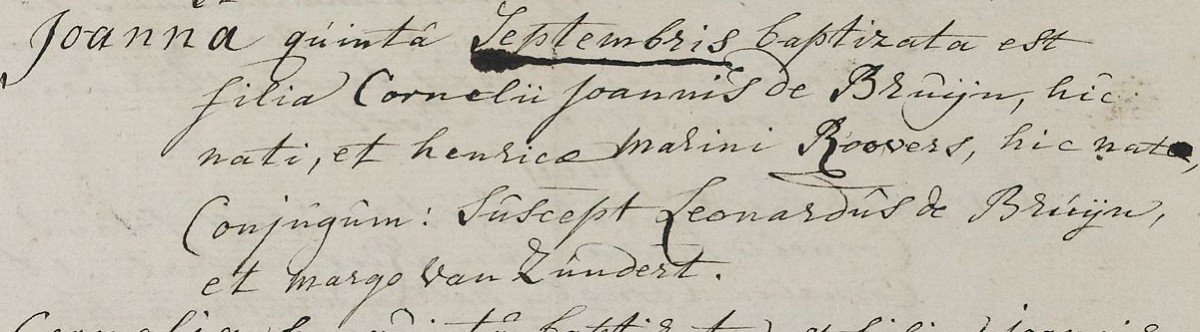 Joanna quintâ Septembris baptizata est
filia Cornelii Joannis de Bruijn, hic
nati, et henricæ marini Roovers, hic natæ,
Conjugum: Suscept Leonardus de Bruijn,
et margo van Zundert.
Cornelia baptizata filia Joannis